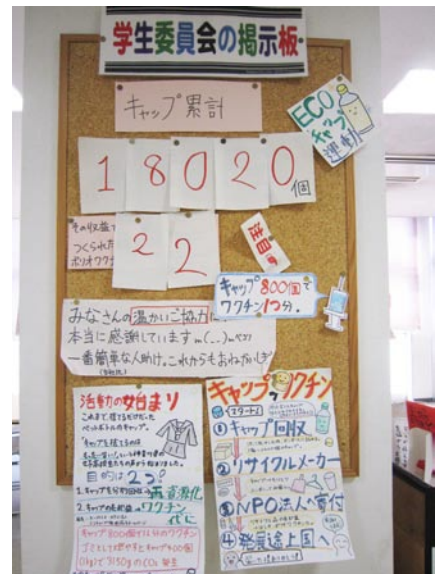 学生委員会の掲示板
キャップ累計
ECO
キャップ
運動
18020個
その収益で
つくられた
ポリオワクチン
22
注目
キャップ800個で
ワクチン1つ分。
みなさんの温かいご協力に
本当に感謝しています m(..)m ペコッ
一番簡単な人助け。これからもおねがいします
活動の始まり
これまで、捨てるだけだった
ペットボトルのキャップ。
"キャップを捨てるのは
目的は2つ!
1.キャップを分別回収し→再資源化
2.キャップの売却益→ワクチン
代に
キャップ800個で1人分のワクチン
ゴミとして燃やすとキャップ400個
(1kg)で3150gのCO₂発生
キャップ→ワクチン
スタート!
①キャップ回収
②リサイクルメーカー
③NPO法人へ寄付
④発展途上国へ